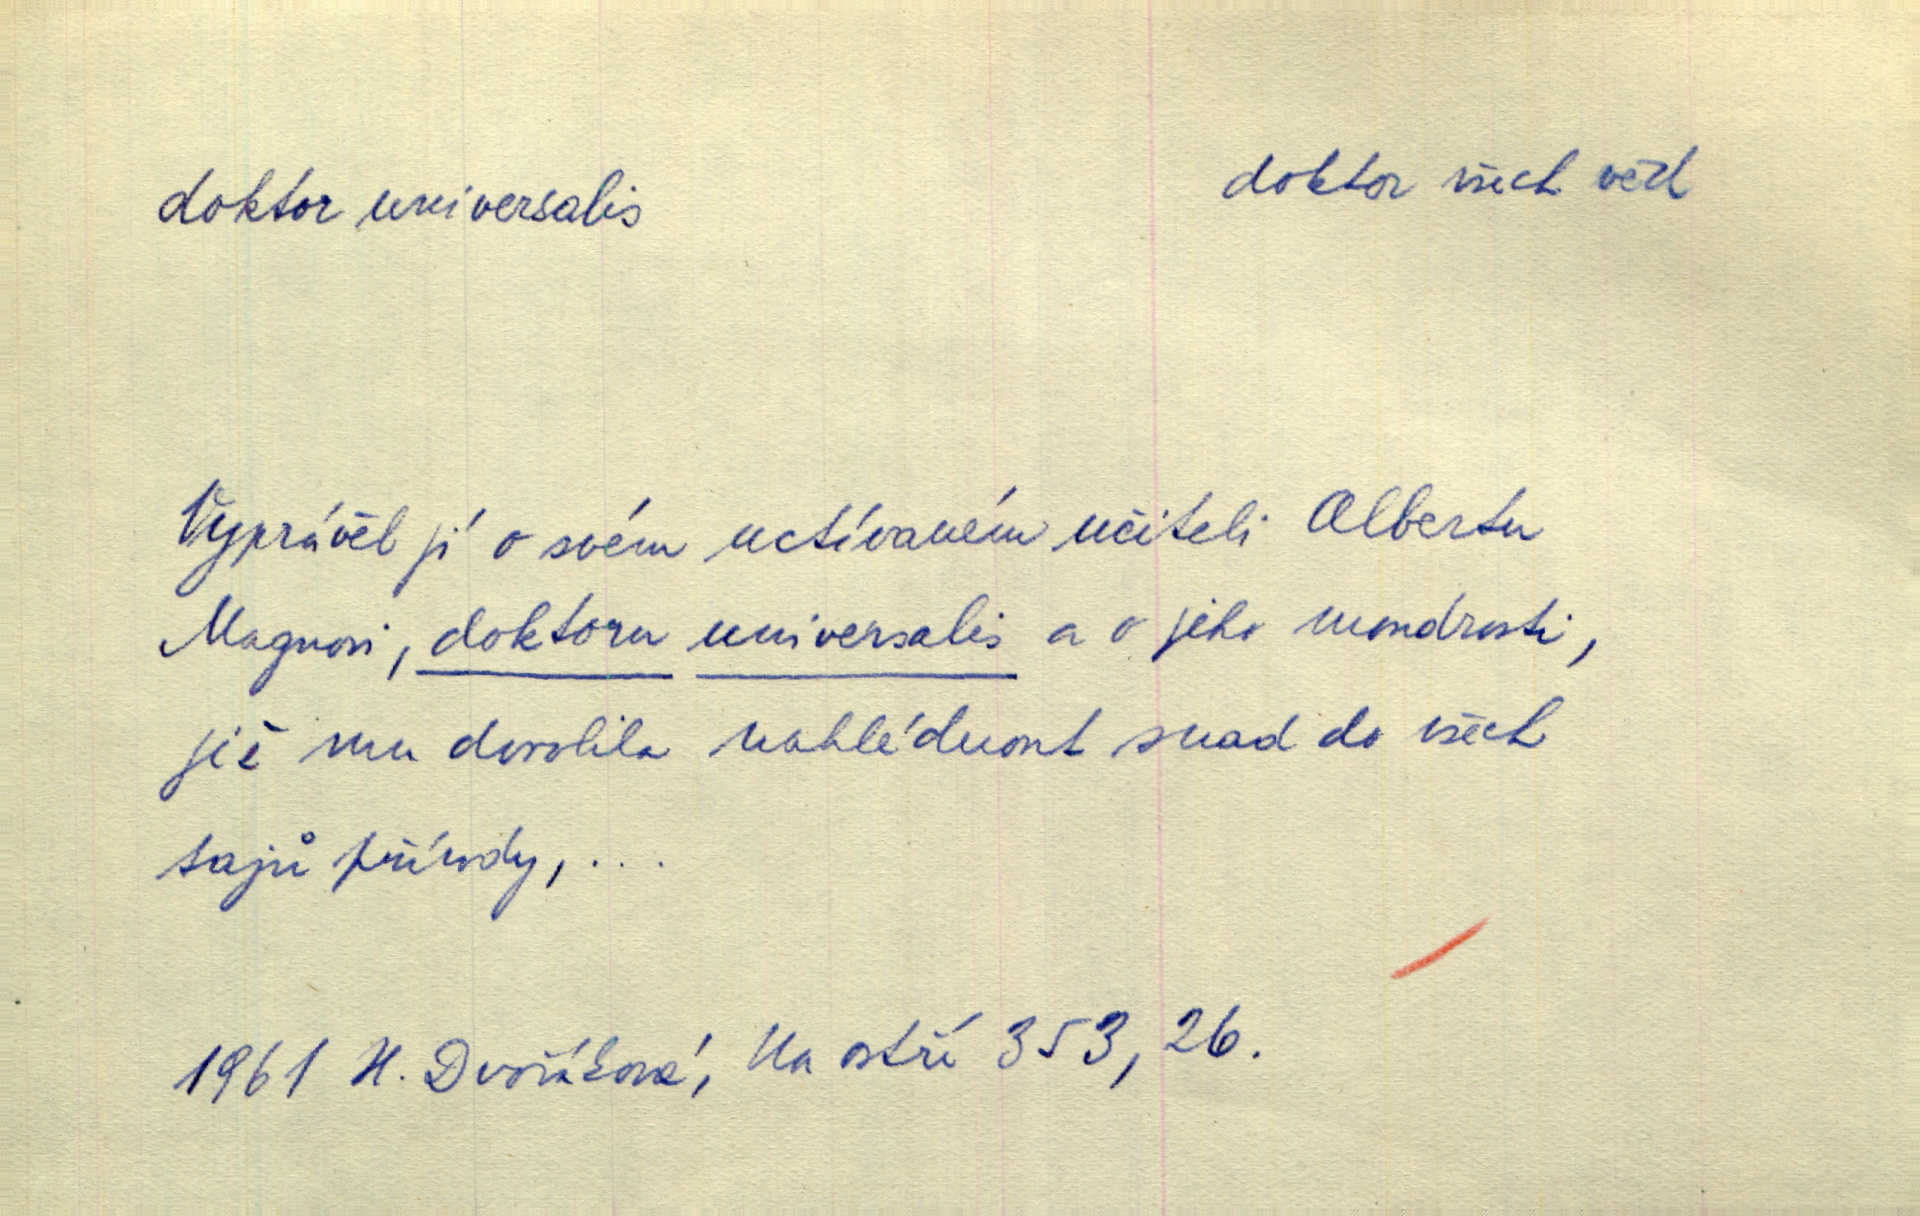 doktor universalis
doktor všech věd
Vyprávěl jí o svém uctívaném učiteli Albertu
Magnovi, doktoru universalis a o jeho moudrosti,
jež mu dovolila nahlédnout snad do všech
tajů přírody, ...
1961 H. Dvořáková, Na ostří 353, 26.